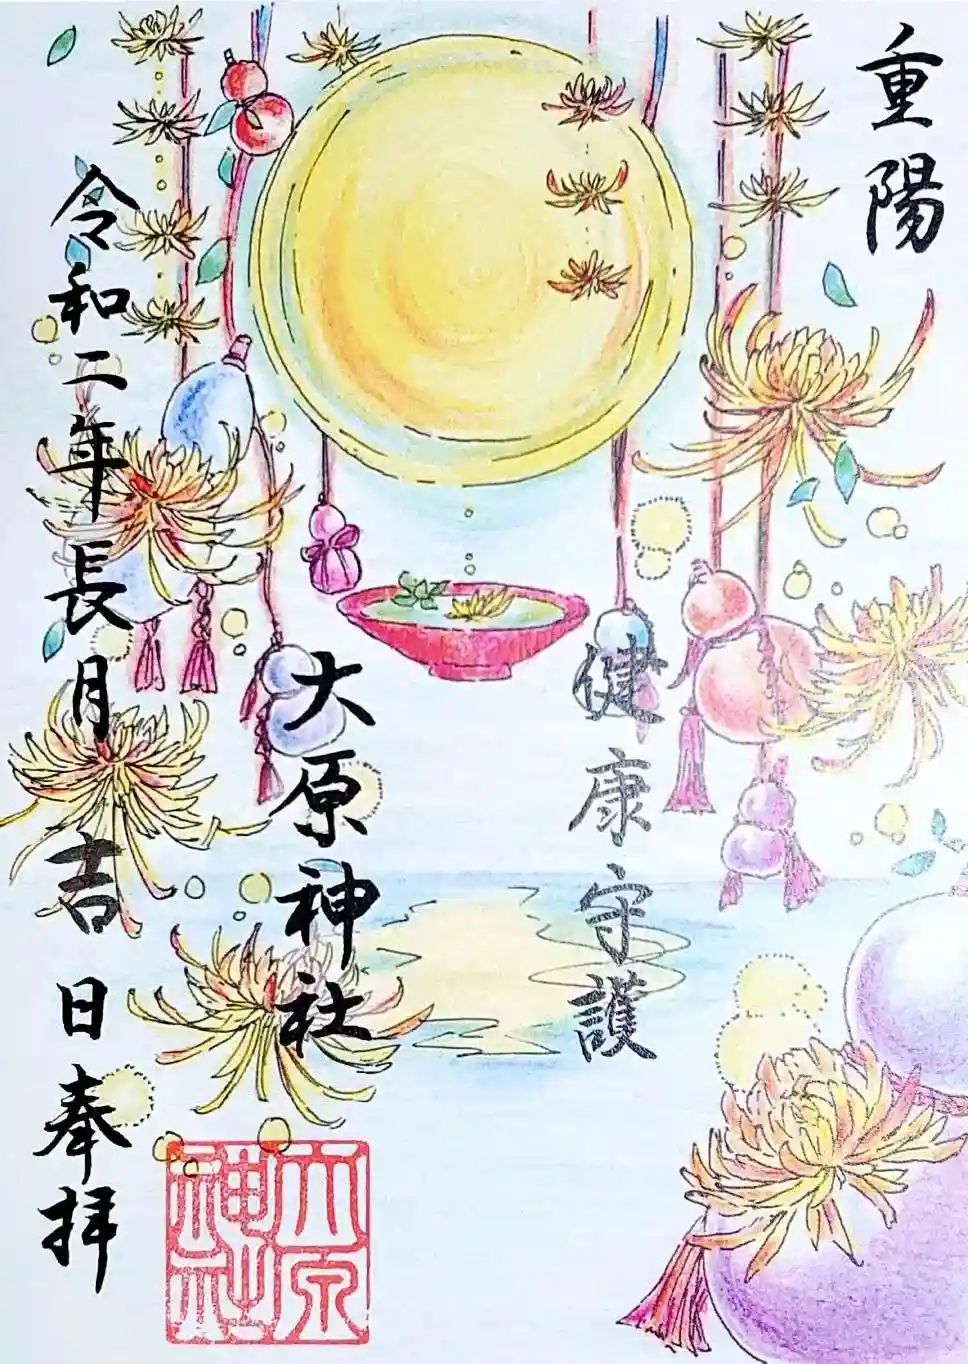 重陽
健康守護
大原神社
令和二年長月吉日奉拝
大原神社